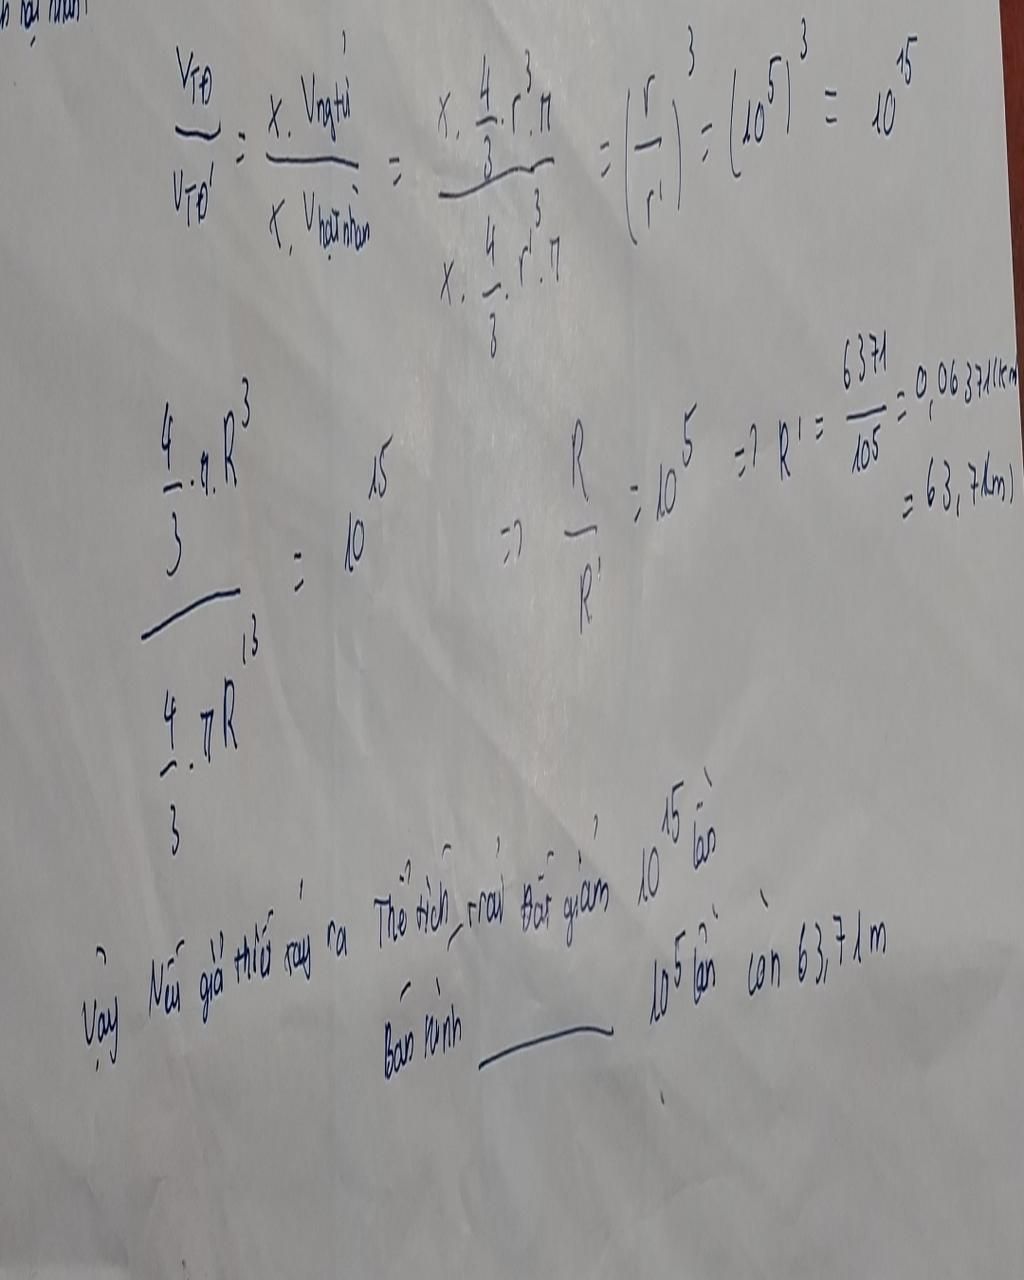 hạt nhân
V_TĐ / V_TĐ' = x. Vngtử / x. Vhạt nhân = x. 4/3 . r³. π / x. 4/3 . r'³. π = (r/r')³ = (10⁵)³ = 10¹⁵
4/3 . π. R³ / 4/3 . π R'³ = 10¹⁵ => R/R' = 10⁵ => R' = 6371/10⁵ = 0,06371(km
= 63,71(m)
Vậy Nếu giả thiết xảy ra Thể tích trái Đất giảm 10¹⁵ lần
Bán kính ——— 10⁵ lần còn 63,71m